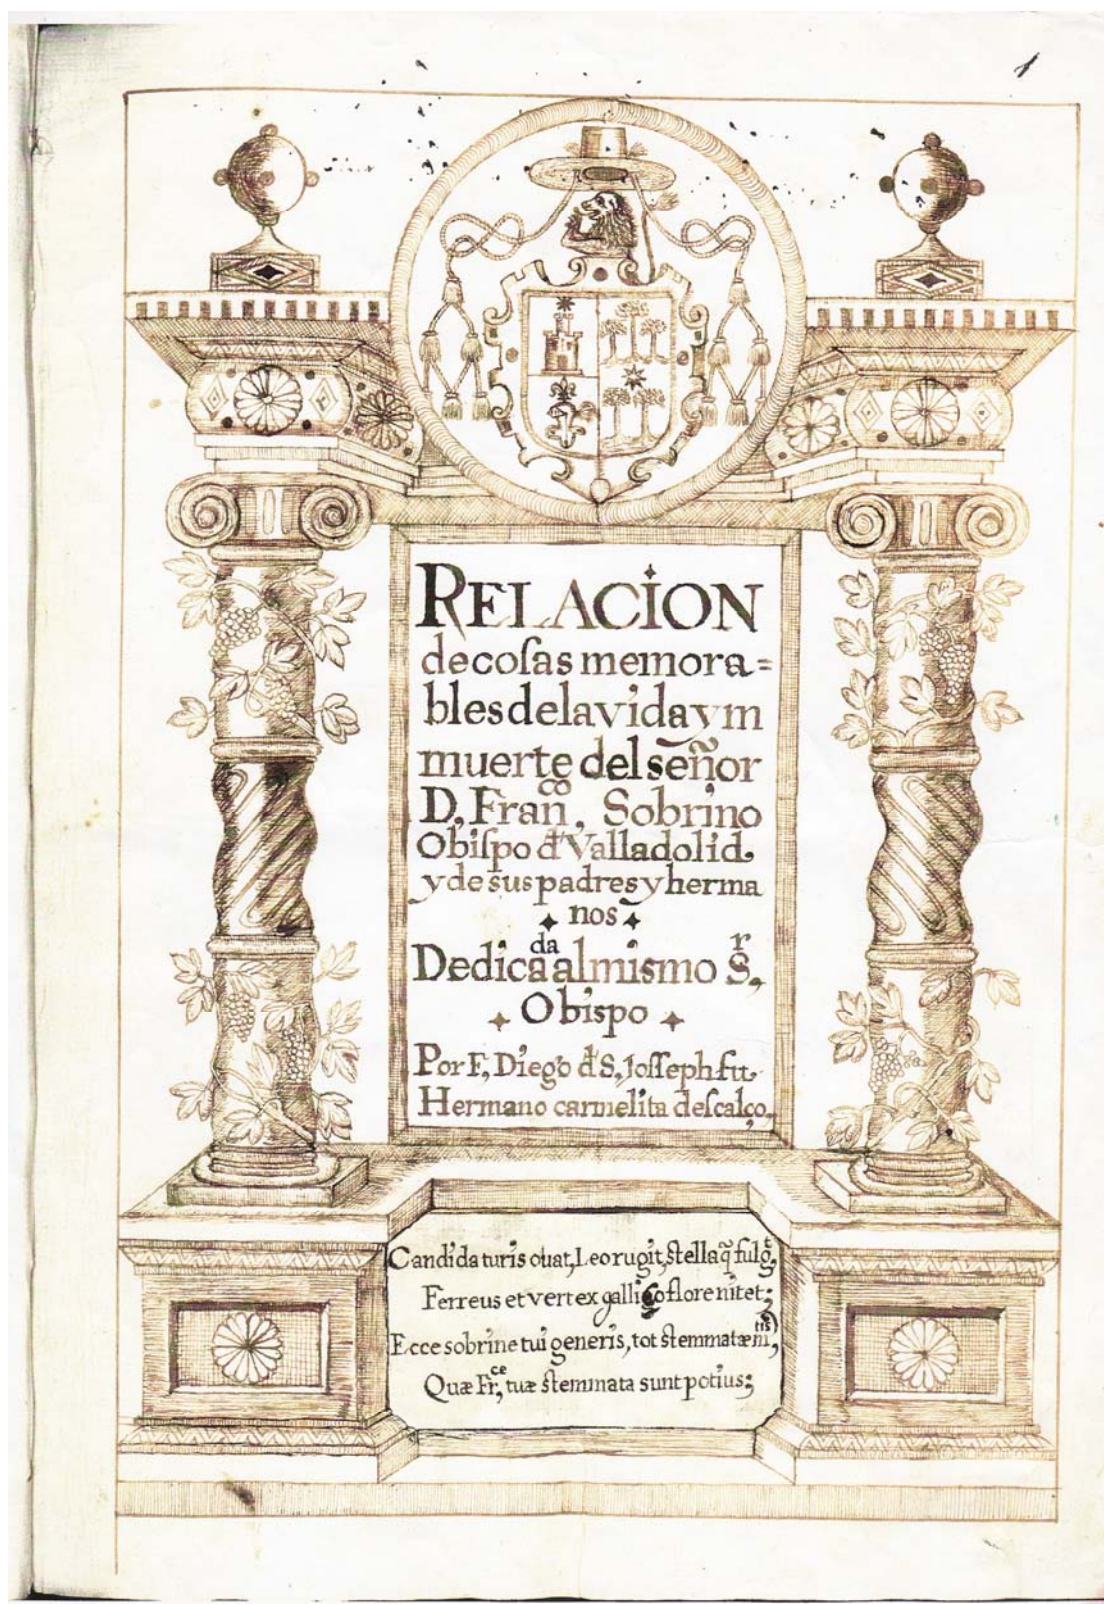 1
RELACION
de coſas memora=
bles dela vida y m
muerte del señor
D, Fran^co, Sobrino
Obiſpo đ Valladolid,
y de sus padres y herma
nos
Dedica^da al mismo S^r,
Obispo
Por F, Diego đ S, Joſſeph ſu
Hermano carmelita deſcalço,
Candida turis ovat, Leo rugit, ſtellaq̃ fulg^t,
Ferreus et vertex gallico flore nitet;
Ecce sobrine tui generis, tot ſtemmata m^tis,
Quæ Fr^ce, tuæ ſtemmata sunt potius;